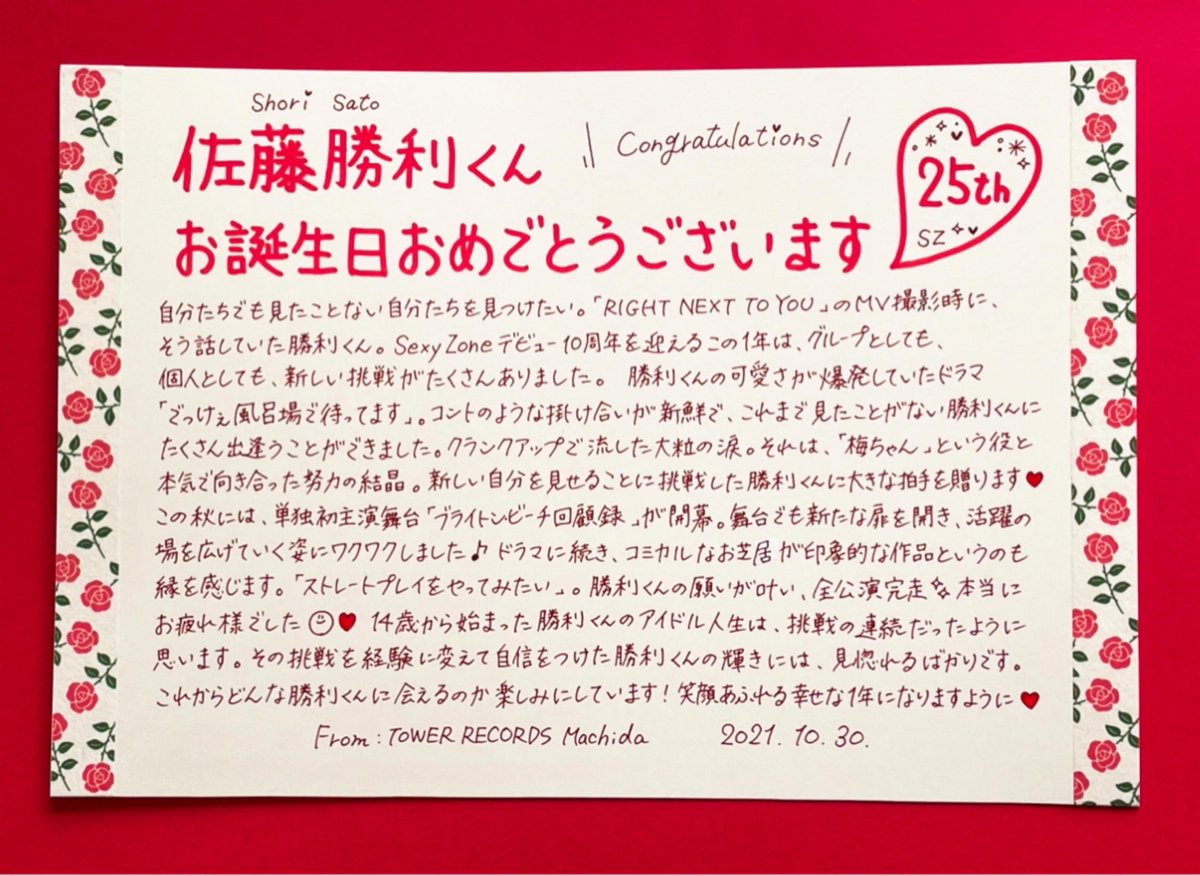 Shori Sato
佐藤勝利くん
\\ Congratulations //
25th
SZ
お誕生日おめでとうございます
自分たちでも見たことない自分たちを見つけたい。「RIGHT NEXT TO YOU」のMV撮影時に、
そう話していた勝利くん。Sexy Zoneデビュー10周年を迎えるこの1年は、グループとしても、
個人としても、新しい挑戦がたくさんありました。 勝利くんの可愛さが爆発していたドラマ
「でっけぇ風呂場で待ってます」。コントのような掛け合いが新鮮で、これまで見たことがない勝利くんに
たくさん出逢うことができました。クランクアップで流した大粒の涙。それは、「梅ちゃん」という役と
本気で向き合った努力の結晶。新しい自分を見せることに挑戦した勝利くんに大きな拍手を贈ります♥
この秋には、単独初主演舞台「ブライトンビーチ回顧録」が開幕。舞台でも新たな扉を開き、活躍の
場を広げていく姿にワクワクしました♪ドラマに続き、コミカルなお芝居が印象的な作品というのも
縁を感じます。「ストレートプレイをやってみたい」。勝利くんの願いが叶い、全公演完走✨本当に
お疲れ様でした☺♥ 14歳から始まった勝利くんのアイドル人生は、挑戦の連続だったように
思います。その挑戦を経験に変えて自信をつけた勝利くんの輝きには、見惚れるばかりです。
これからどんな勝利くんに会えるのか楽しみにしています!笑顔あふれる幸せな1年になりますように♥
From:TOWER RECORDS Machida 2021.10.30.